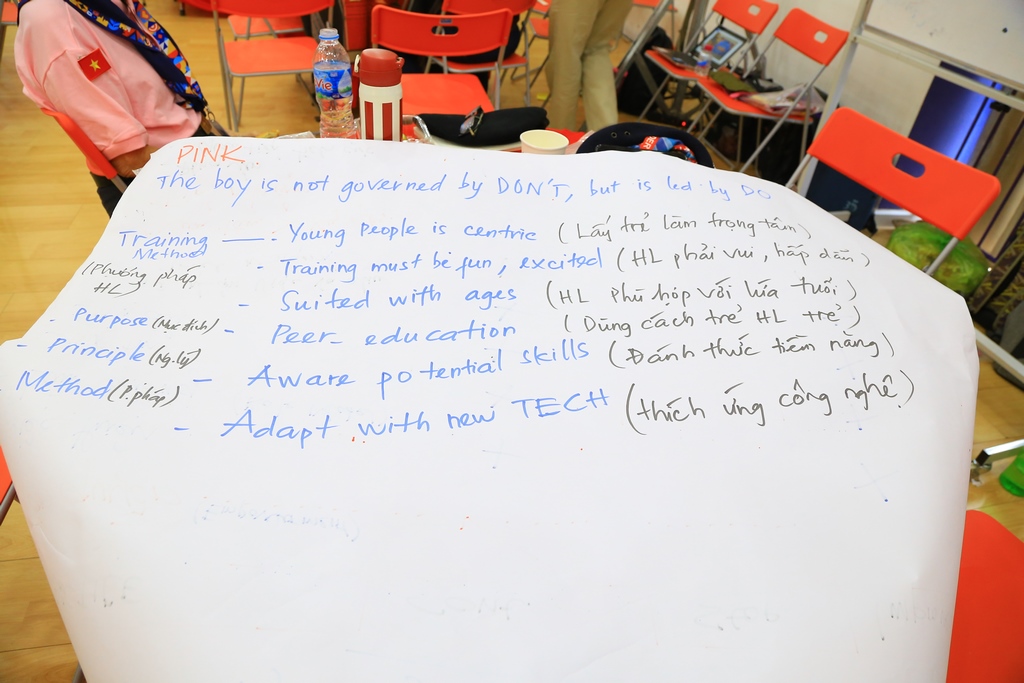 PINK
The boy is not governed by DON'T, but is led by DO
Training Method
(Phương pháp HL)
- Purpose (Mục đích)
- Principle (Ng.lý)
Method (P.pháp)
- Young People is centric (Lấy trẻ làm trọng tâm)
- Training must be fun, excited (HL phải vui, hấp dẫn)
- Suited with ages (HL phù hợp với lứa tuổi)
- Peer education (Dùng cách trẻ HL trẻ)
- Aware potential skills (Đánh thức tiềm năng)
- Adapt with new TECH (thích ứng công nghệ)